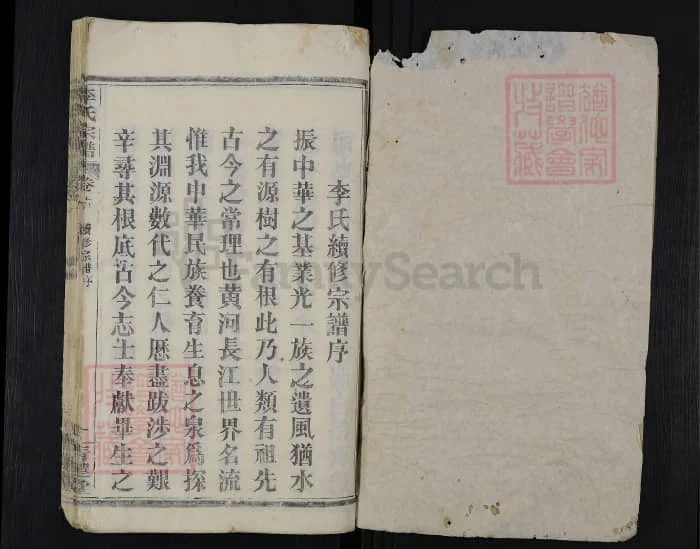 李氏續修宗譜序
振中華之基業光一族之遺風猶水
之有源樹之有根此乃人類有祖先
古今之常理也黃河長江世界名流
惟我中華民族養育生息之泉爲探
其淵源數代之仁人歷盡跋涉之艱
辛尋其根底古今志士奉獻畢生之
李氏宗譜
卷
續修宗譜序
FamilySearch